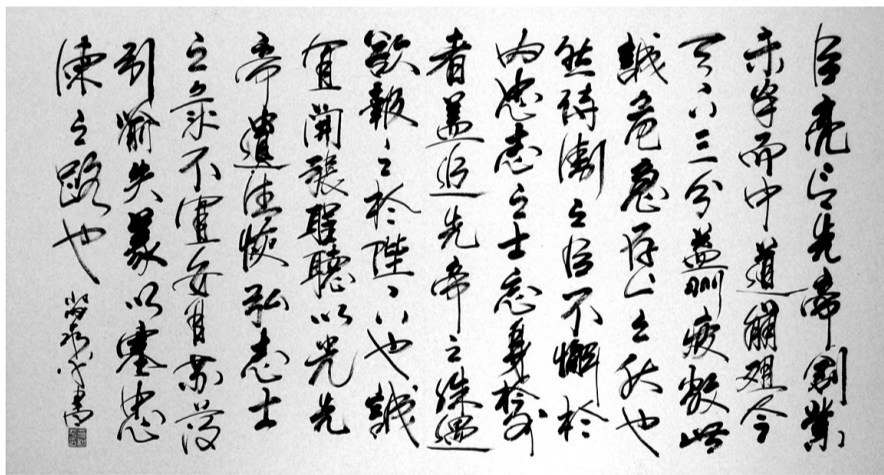 臣亮言先帝創業
未半而中道崩殂今
天下三分益州疲敝此
誠危急存亡之秋也
然侍衛之臣不懈於
内忠志之士忘身於外
者蓋追先帝之殊遇
欲報之於陛下也誠
宜開張聖聽以光先
帝遺德恢弘志士
之氣不宜妄自菲薄
引喻失義以塞忠
諫之路也
書